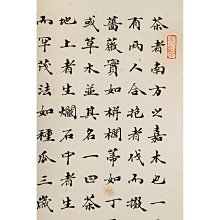 茶者南方之嘉木也一
有兩人合抱者伐而掇
薔薇實如栟櫚蒂如丁
或草木並其名一曰茶
地上者生爛石中者生
而罕茂法如種瓜三歲